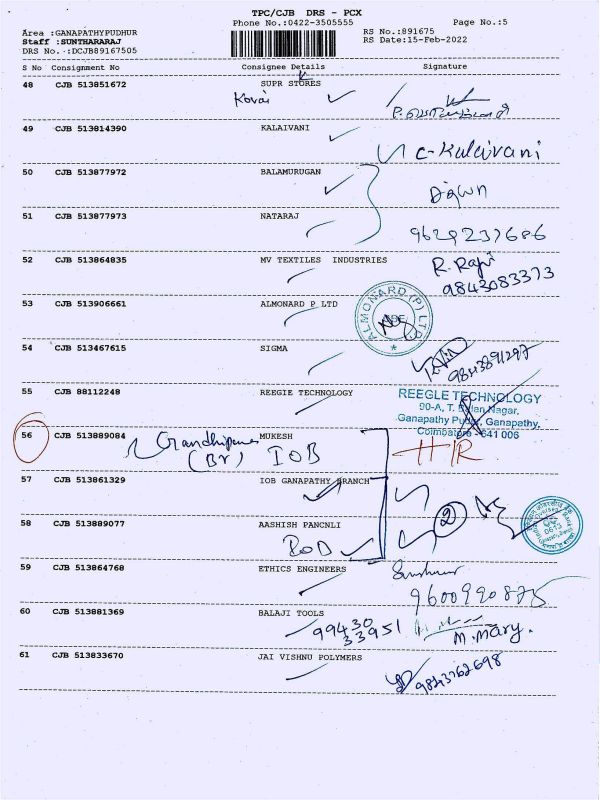 TPC/CJB DRS - PCX
Phone No.:0422-3505555 Page No.:5
Area :GANAPATHYPUDHUR RS No.:891675
Staff :SUNTHARARAJ RS Date:15-Feb-2022
DRS No.:DCJB89167505
S No Consignment No Consignee Details Signature
48 CJB 513851672 SUPR STORES
Kovai
49 CJB 513814390 KALAIVANI
C-Kalaivani
50 CJB 513877972 BALAMURUGAN
51 CJB 513877973 NATARAJ
9629237686
52 CJB 513864835 MV TEXTILES INDUSTRIES
R. Raji
9843083373
53 CJB 513906661 ALMONARD P LTD
ALMONARD (P) LTD
54 CJB 513467615 SIGMA
9843891297
55 CJB 88112248 REEGIE TECHNOLOGY
REEGLE TECHNOLOGY
90-A, T. Nagar,
Ganapathy Pudur, Ganapathy,
Coimbatore - 641 006
56 CJB 513889084 MUKESH
(Br) IOB
57 CJB 513861329 IOB GANAPATHY BRANCH
58 CJB 513889077 AASHISH PANCNLI
2
BOD
59 CJB 513864768 ETHICS ENGINEERS
9600990875
60 CJB 513881369 BALAJI TOOLS
99430
33951
M. Mary.
61 CJB 513833670 JAI VISHNU POLYMERS
9843762698